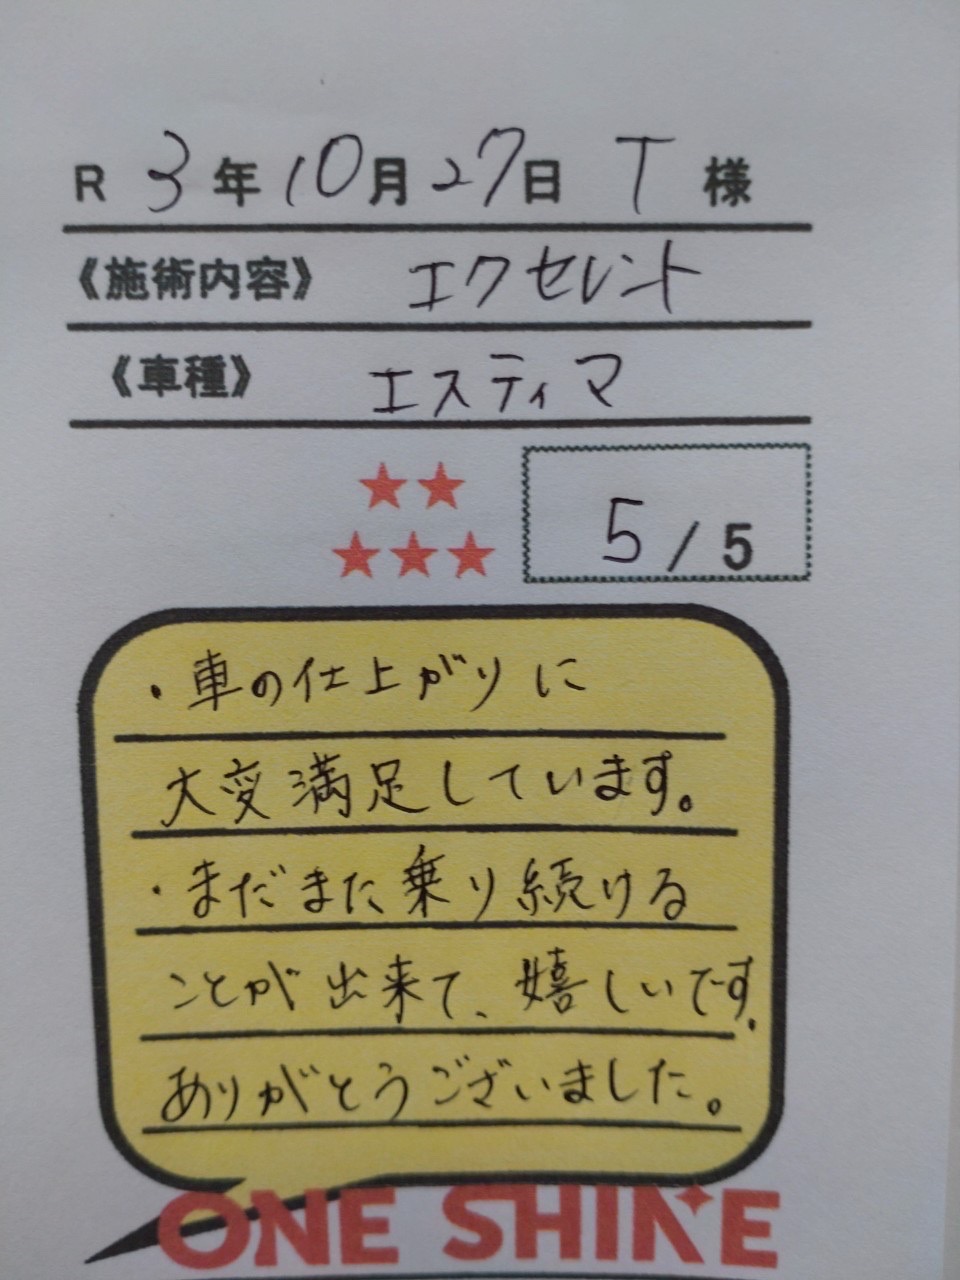 R 3年10月27日 T 様
《施術内容》 エクセレント
《車種》 エスティマ
5/5
・車の仕上がりに
大変満足しています。
・まだまだ乗り続ける
ことが出来て、嬉しいです.
ありがとうございました。
ONE SHINE